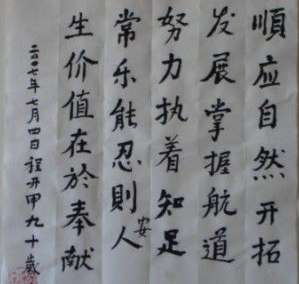 順应自然开拓
发展掌握航道
努力执着知足
常乐能忍則安人
生价值在於奉献
二〇〇七年七月四日程开甲九十歲